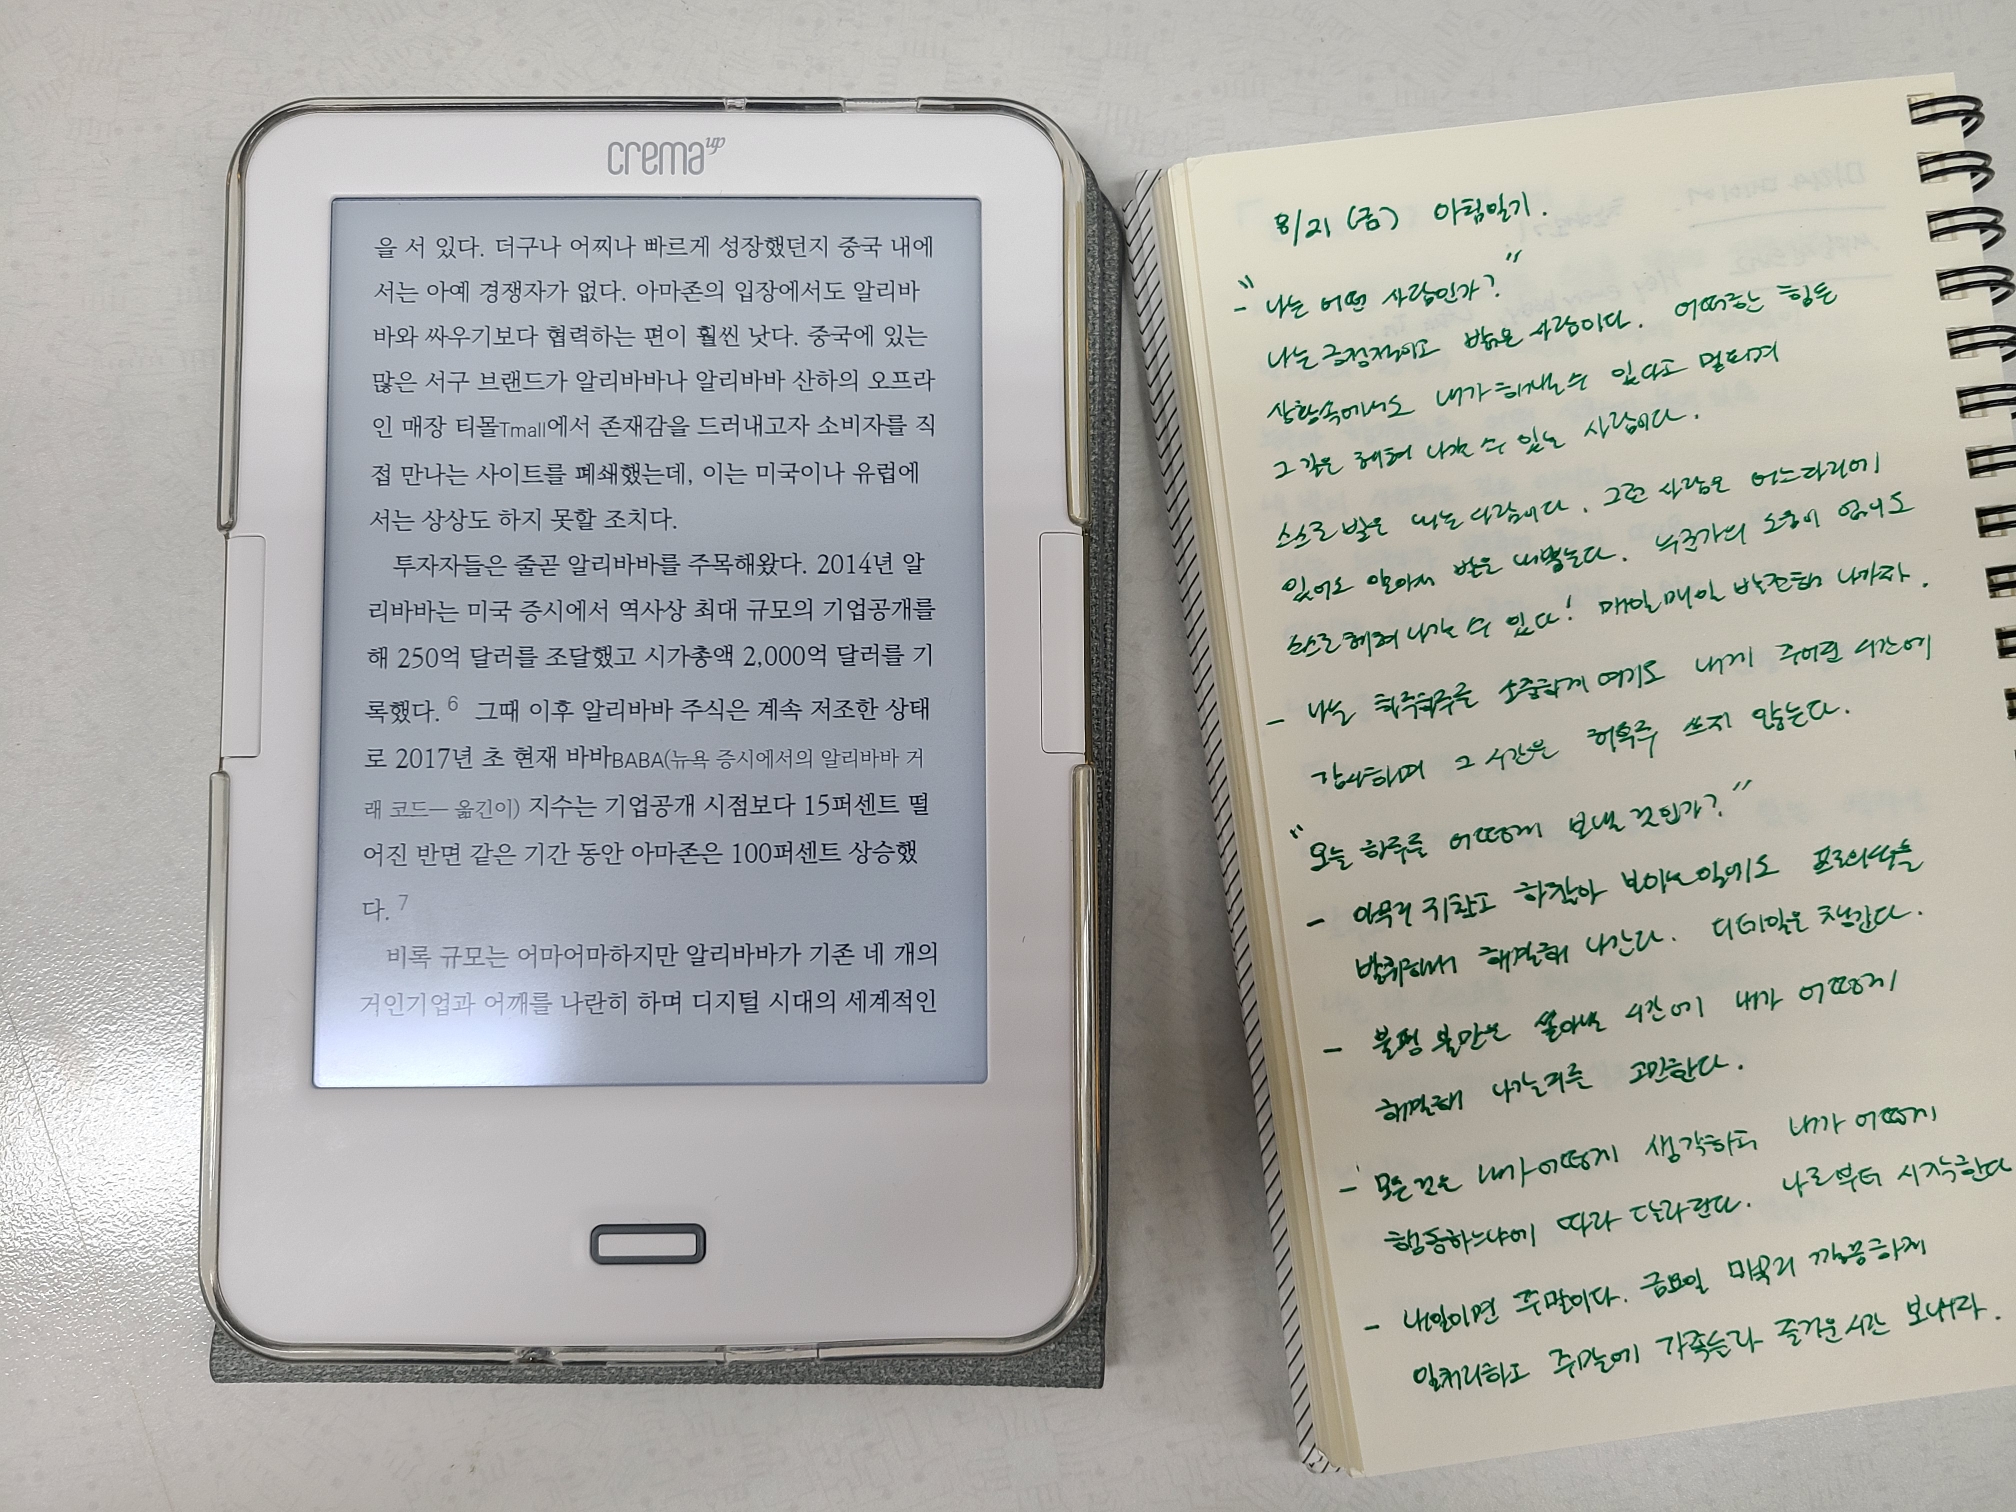 crema up
을 서 있다. 더구나 어찌나 빠르게 성장했던지 중국 내에
서는 아예 경쟁자가 없다. 아마존의 입장에서도 알리바
바와 싸우기보다 협력하는 편이 훨씬 낫다. 중국에 있는
많은 서구 브랜드가 알리바바나 알리바바 산하의 오프라
인 매장 티몰Tmall에서 존재감을 드러내고자 소비자를 직
접 만나는 사이트를 폐쇄했는데, 이는 미국이나 유럽에
서는 상상도 하지 못할 조치다.
투자자들은 줄곧 알리바바를 주목해왔다. 2014년 알
리바바는 미국 증시에서 역사상 최대 규모의 기업공개를
해 250억 달러를 조달했고 시가총액 2,000억 달러를 기
록했다. 6 그때 이후 알리바바 주식은 계속 저조한 상태
로 2017년 초 현재 바바BABA(뉴욕 증시에서의 알리바바 거
래 코드— 옮긴이) 지수는 기업공개 시점보다 15퍼센트 떨
어진 반면 같은 기간 동안 아마존은 100퍼센트 상승했
다. 7
비록 규모는 어마어마하지만 알리바바가 기존 네 개의
거인기업과 어깨를 나란히 하며 디지털 시대의 세계적인
8/21 (금) 아침일기.
"나는 어떤 사람인가?"
- 나는 긍정적이고 밝은 사람이다. 어떠한 힘든
상황속에서도 내가 해낼 수 있다고 믿으며
그 길을 헤쳐 나갈 수 있는 사람이다.
스스로 빛을 내는 사람이다. 그런 사람은 어느자리에
있어도 알아서 빛을 내뿜는다. 누군가의 도움이 없이도
스스로 헤쳐나갈 수 있다! 매일매일 발전해 나가자.
- 나는 하루하루를 소중하게 여기고 내게 주어진 시간에
감사하며 그 시간을 허투루 쓰지 않는다.
"오늘 하루를 어떻게 보낼 것인가?"
- 아무리 지치고 하찮아 보이는 일에도 프로의식을
발휘해서 해결해 나간다. 디테일을 챙긴다.
- 불평 불만을 쏟아낼 시간에 내가 어떻게
해결해 나갈지를 고민한다.
- 모든 것은 내가 어떻게 생각하고 내가 어떻게
행동하느냐에 따라 달라진다. 나로부터 시작한다
- 내일이면 주말이다. 금요일 마무리 깔끔하게
일처리하고 주말에 가족들과 즐거운 시간 보내자.